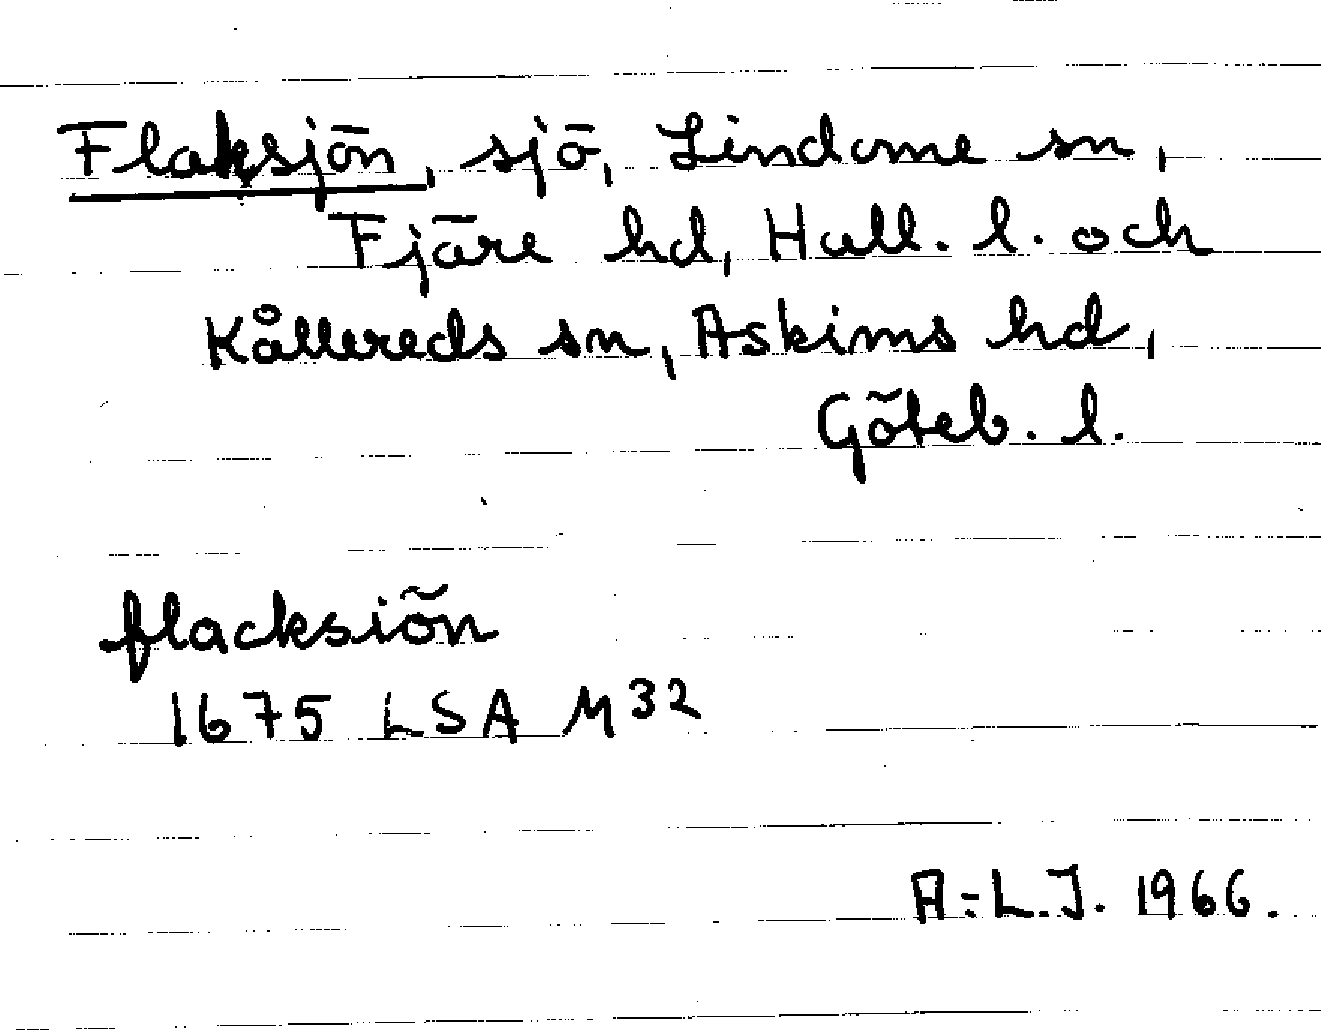 Flaksjön, sjö, Lindome sn,
Fjäre hd, Hall. l. och
Kållereds sn, Askims hd,
Göteb. l.
flacksiön
1675 LSA M32
A-L.J. 1966.